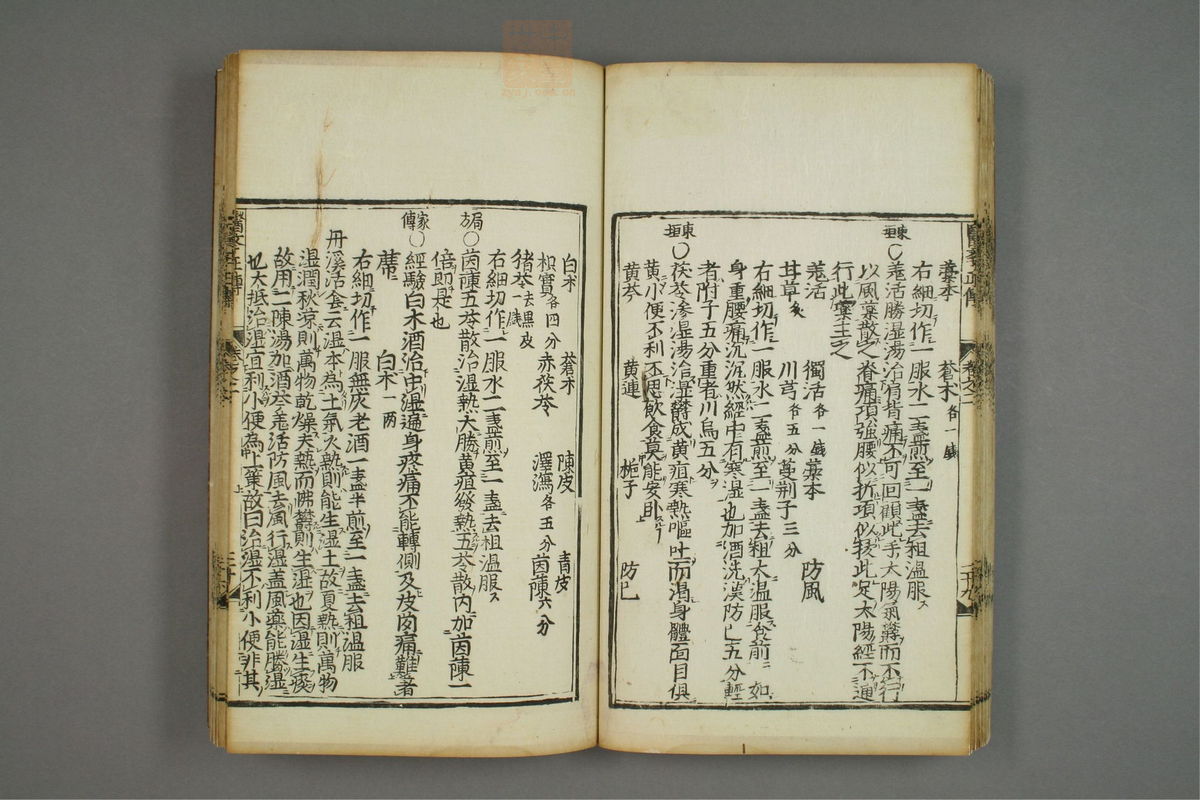 藁本　蒼术各一戔
右細切作一服水二盞煎至一盞去粗温服
東垣○羗活勝湿湯治肩背痛不可回顧此手太陽氣鬱而不行
以風藥散之脊痛項強腰似折項似拔此足太陽經不通
行此藥主之
羗活　獨活各一戔　藁本　防風
甘草炙　川芎各五分　蔓荆子三分
右細切作一服水二盞煎至一盞去粗大温服食前如
身重腰痛沉沉然經中有寒湿也加酒洗漢防己五分輕
者附子五分重者川烏五分
東垣○茯苓滲湿湯治湿欝成黄疸寒熱嘔吐而渴身體面目俱
黄小便不利不思飲食莫能安卧
黄芩　黄連　梔子　防己
白术　蒼术　陳皮　青皮
枳實各四分　赤茯苓　澤瀉各五分　茵蔯六分
猪苓一戔去黒皮
右細切作一服水二盞煎至一盞去粗温服
局方○茵蔯五苓散治湿熱大勝黄疸發熱五苓散内加茵蔯一
倍即是也
家傳○經驗白术酒治中湿遍身疼痛不能轉側及皮肉痛難著
蓆
白术一两
右細切作一服無灰老酒一盞半煎至一盞去粗温服
丹溪活套云湿本為土氣火熱則能生湿土故夏熱則萬物
湿潤秋凉則萬物乾燥夫熱而怫欝則生湿也因湿生痰
故用二陳湯加酒芩羗活防風去風行湿盖風藥能勝湿
也大抵治湿宜利小便為上策故曰治湿不利小便非其